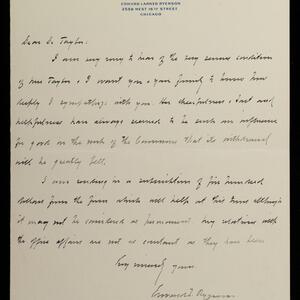 EDWARD LARNED RYERSON
2558 WEST 16TH STREET
CHICAGO
Dear Dr. Taylor:
I am very sorry to hear of the very serious condition
of Mrs Taylor & I want you & your family to know how
deeply I sympathize with you. Her cheerfulness, tact and
helpfulness have always seemed to be such an influence
for good in the work of the Commons that its withdrawal
will be greatly felt.
I am sending in a subscription of five hundred
dollars from the firm which will help at this time although
it may not be considered as permanent. My relations with
the office affairs are not as constant as they have been
Very sincerely yours
Edward L. Ryerson